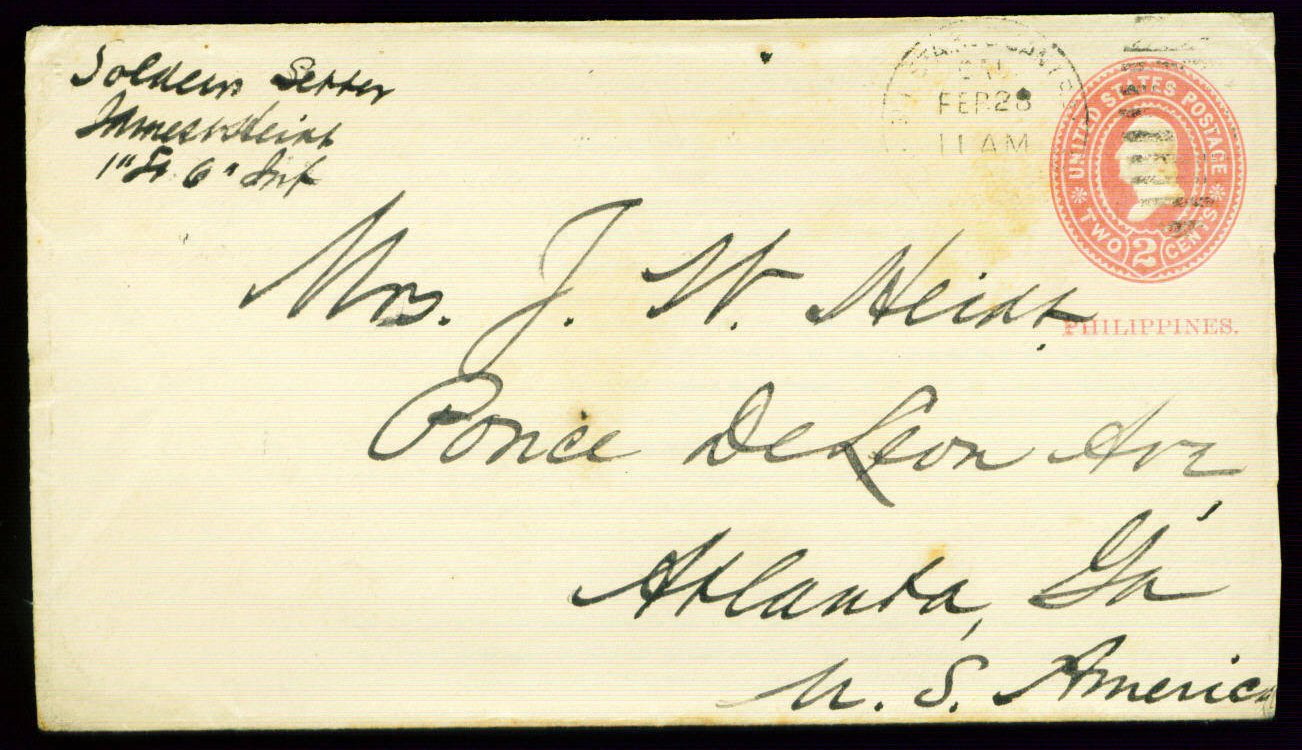 Soldiers Letter
James W Heidt
1" Lt 6" Inf
FEB 28
11 AM
UNITED STATES POSTAGE
TWO 2 CENTS
PHILIPPINES.
Mrs. J. W. Heidt
Ponce De Leon Ave,
Atlanta, Ga
U. S. America